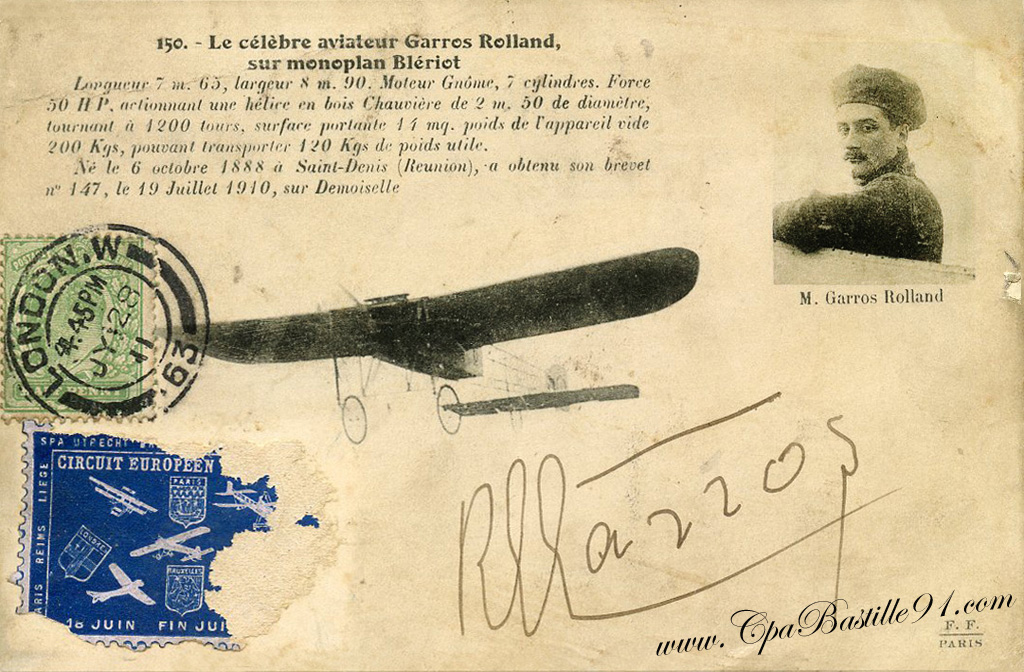 150. - Le célèbre aviateur Garros Rolland,
sur monoplan Blériot
Longueur 7 m. 65, largeur 8 m. 90. Moteur Gnôme, 7 cylindres. Force
50 H P, actionnant une hélice en bois Chauvière de 2 m. 50 de diamètre,
tournant à 1200 tours, surface portante 14 mq. poids de l'appareil vide
200 Kgs, pouvant transporter 120 Kgs de poids utile.
Né le 6 octobre 1888 à Saint-Denis (Reunion), a obtenu son brevet
nº 147, le 19 Juillet 1910, sur Demoiselle
M. Garros Rolland
LONDON.W
4.45PM
JY 12 8
11
63
PENNY
SPA UTRECHT
CIRCUIT EUROPEEN
PARIS
LONDRES
BRUXELLES
ARIS REIMS LIEGE
18 JUIN FIN JUI
RGarros
www.CpaBastille91.com
F. F.
PARIS